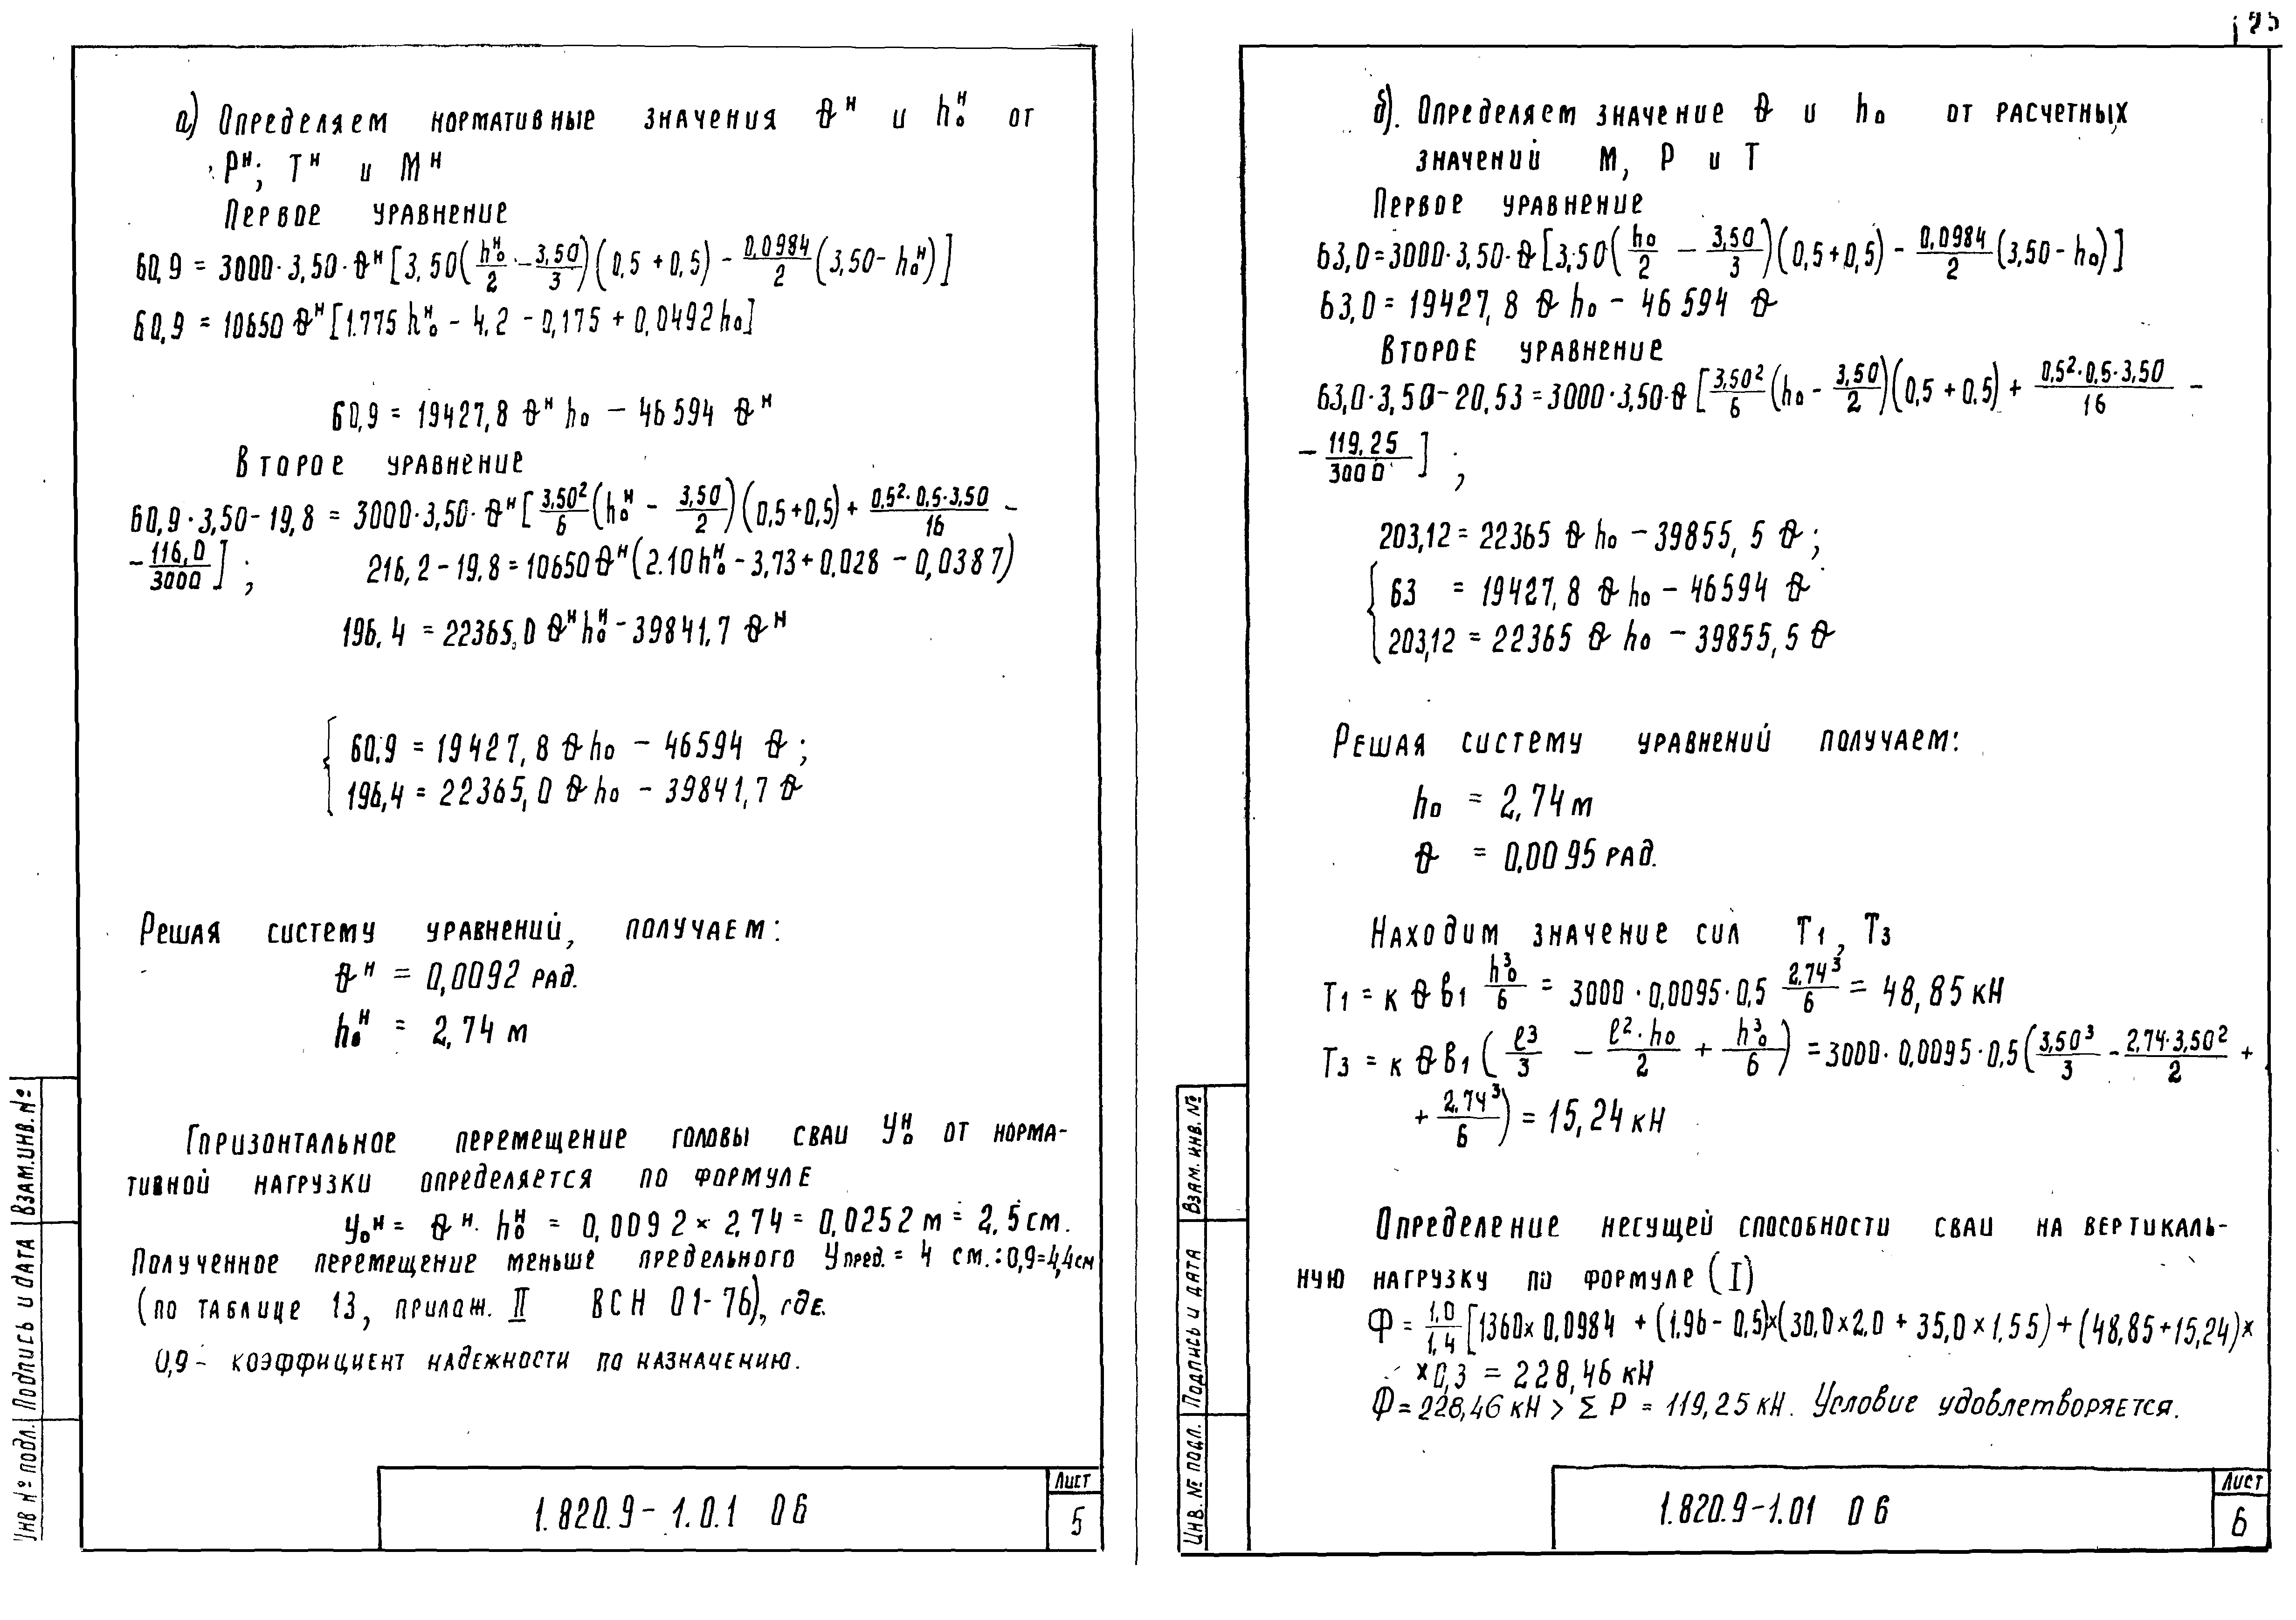 а) Определяем нормативные значения ϑᴴ и h₀ᴴ от
Pᴴ; Tᴴ и Mᴴ
Первое уравнение
60,9 = 3000·3,50·ϑᴴ[3,50(h₀ᴴ/2 - 3,50/3)(0,5+0,5) - 0,0984/2 (3,50-h₀ᴴ)]
60,9 = 10650 ϑᴴ[1.775 h₀ᴴ - 4,2 - 0,175 + 0,0492h₀]
60,9 = 19427,8 ϑᴴ h₀ - 46594 ϑᴴ
Второе уравнение
60,9·3,50-19,8 = 3000·3,50·ϑᴴ[3,50²/6 (h₀ᴴ - 3,50/2)(0,5+0,5)+ 0,5²·0,5·3,50/16 -
- 116,0/3000]; 216,2-19.8=10650ϑᴴ(2.10h₀ᴴ-3,73+0,028-0,0387)
196,4 = 22365,0 ϑᴴh₀ᴴ-39841,7 ϑᴴ
{ 60,9 = 19427,8 ϑh₀ - 46594 ϑ;
196,4 = 22365,0 ϑh₀ - 39841,7 ϑ
Решая систему уравнений, получаем:
ϑᴴ = 0,0092 рад.
h₀ᴴ = 2,74 м
Горизонтальное перемещение головы сваи У₀ᴴ от норма-
тивной нагрузки определяется по формуле
У₀ᴴ = ϑᴴ·h₀ᴴ = 0,0092×2,74=0,0252м=2,5см.
Полученное перемещение меньше предельного Упред.= 4 см.:0,9=4,4см
(по таблице 13, прилож. II ВСН 01-76), где.
0,9- коэффициент надежности по назначению.
1.820.9-1.0.1 06
Лист
5
Инв № подл. Подпись и дата Взам.инв.№
б). Определяем значение ϑ и h₀ от расчетных
значений M, P и T
Первое уравнение
63,0=3000·3,50·ϑ[3,50(h₀/2 - 3,50/3)(0,5+0,5)- 0,0984/2 (3,50-h₀)]
63,0=19427,8 ϑ h₀ - 46594 ϑ
Второе уравнение
63,0·3,50-20,53=3000·3,50·ϑ[3,50²/6 (h₀ - 3,50/2)(0,5+0,5)+ 0,5²·0,5·3,50/16 -
- 119,25/3000];
203,12=22365 ϑ h₀ -39855,5 ϑ;
{ 63 = 19427,8 ϑ h₀ - 46594 ϑ
203,12=22365 ϑ h₀ -39855,5 ϑ
Решая систему уравнений получаем:
h₀ = 2,74м
ϑ = 0,0095 рад.
Находим значение сил T₁, T₃
T₁ = к ϑ в₁ h₀³/6 = 3000·0,0095·0,5 2,74³/6 = 48,85кН
T₃ = к ϑ в₁ (ℓ³/3 - ℓ²·h₀/2 + h₀³/6) = 3000·0,0095·0,5(3,50³/3 - 2,74·3,50²/2 +
+ 2,74³/6) = 15,24кН
Определение несущей способности сваи на вертикаль-
ную нагрузку по формуле (I)
Ф = 1,0/1,4 [1360×0,0984 + (1,96-0,5)×(30,0×2,0+35,0×1,55)+(48,85+15,24)×
×0,3 = 228,46 кН
Ф=228,46 кН > Σ P = 119,25 кН. Условие удовлетворяется.
1.820.9-1.01 06
Лист
6
Инв. № подл. Подпись и дата Взам. инв. №